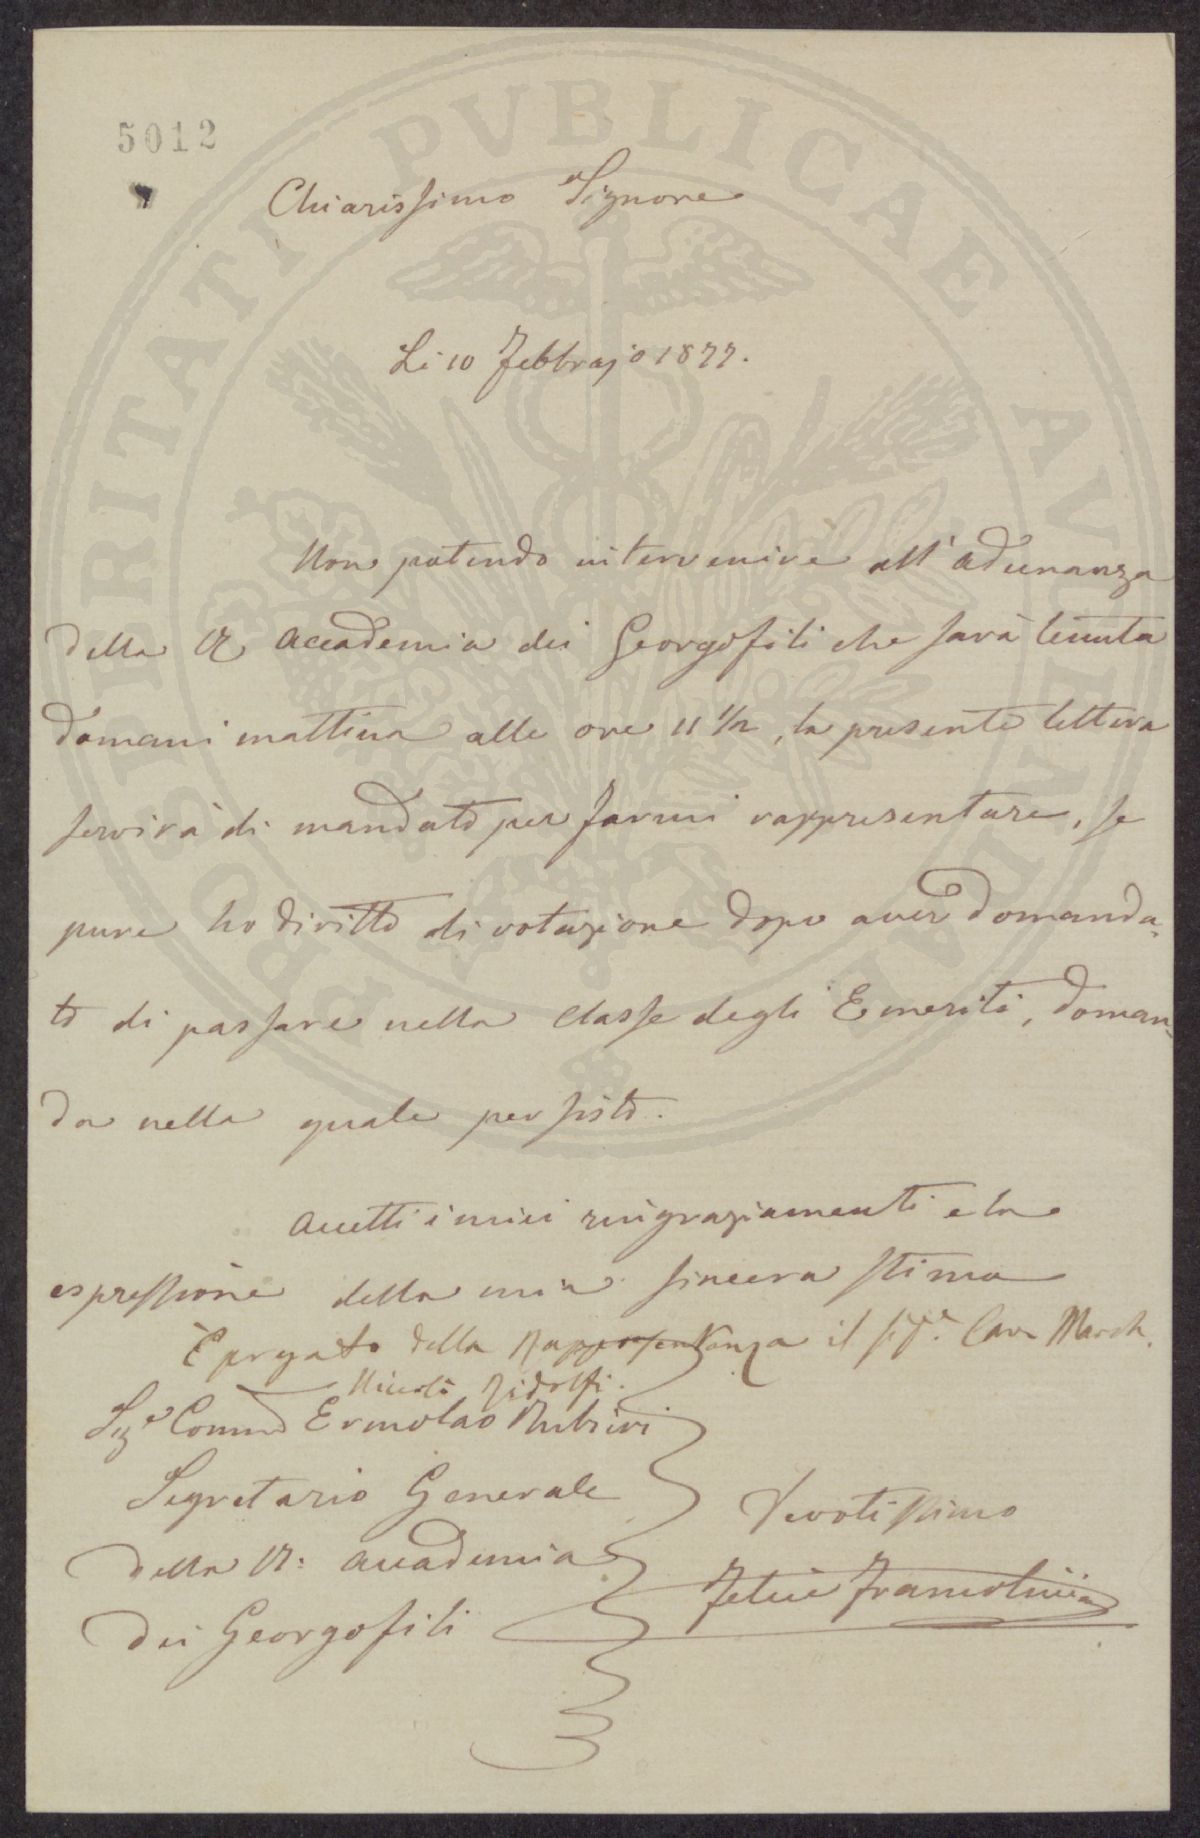 PROSPERITATI PVBLICAE AVGENDAE
5012
Chiarissimo Signore
Li 10 Febbrajo 1877.
Non potendo intervenire all'adunanza
della R Accademia dei Georgofili che sarà tenuta
domani mattina alle ore 11 ½, la presente lettera
servirà di mandato per farmi rappresentare, se
pure ho diritto di votazione dopo aver domanda-
to di passare nella classe degli Emeriti, doman-
da nella quale persisto.
Accetti i miei ringraziamenti e la
espressione della mia sincera stima
È pregato della Rappresentanza il Sigr. Cav. March.
Niccolò Ridolfi.
Sige Commd Ermolao Rubieri
Segretario Generale
della R: Accademia
dei Georgofili
Devotissimo
Felice Francolini